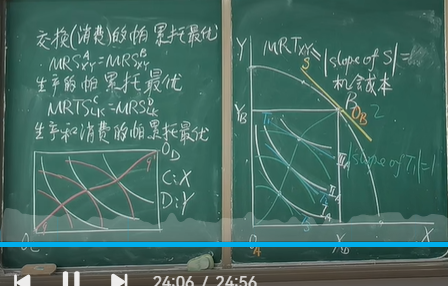 交换(消费)的帕累托最优
MRS^A_XY=MRS^B_XY
生产的帕累托最优
MRTS^C_LK=MRTS^D_LK
生产和消费的帕累托最优
O_D
C:X
D:Y
Y
MRT_XY=|slope of S|=
机会成本
S
B
O_B
2
Y_B
|slope of T_1|=1
II_A
X
24:06 / 24:56